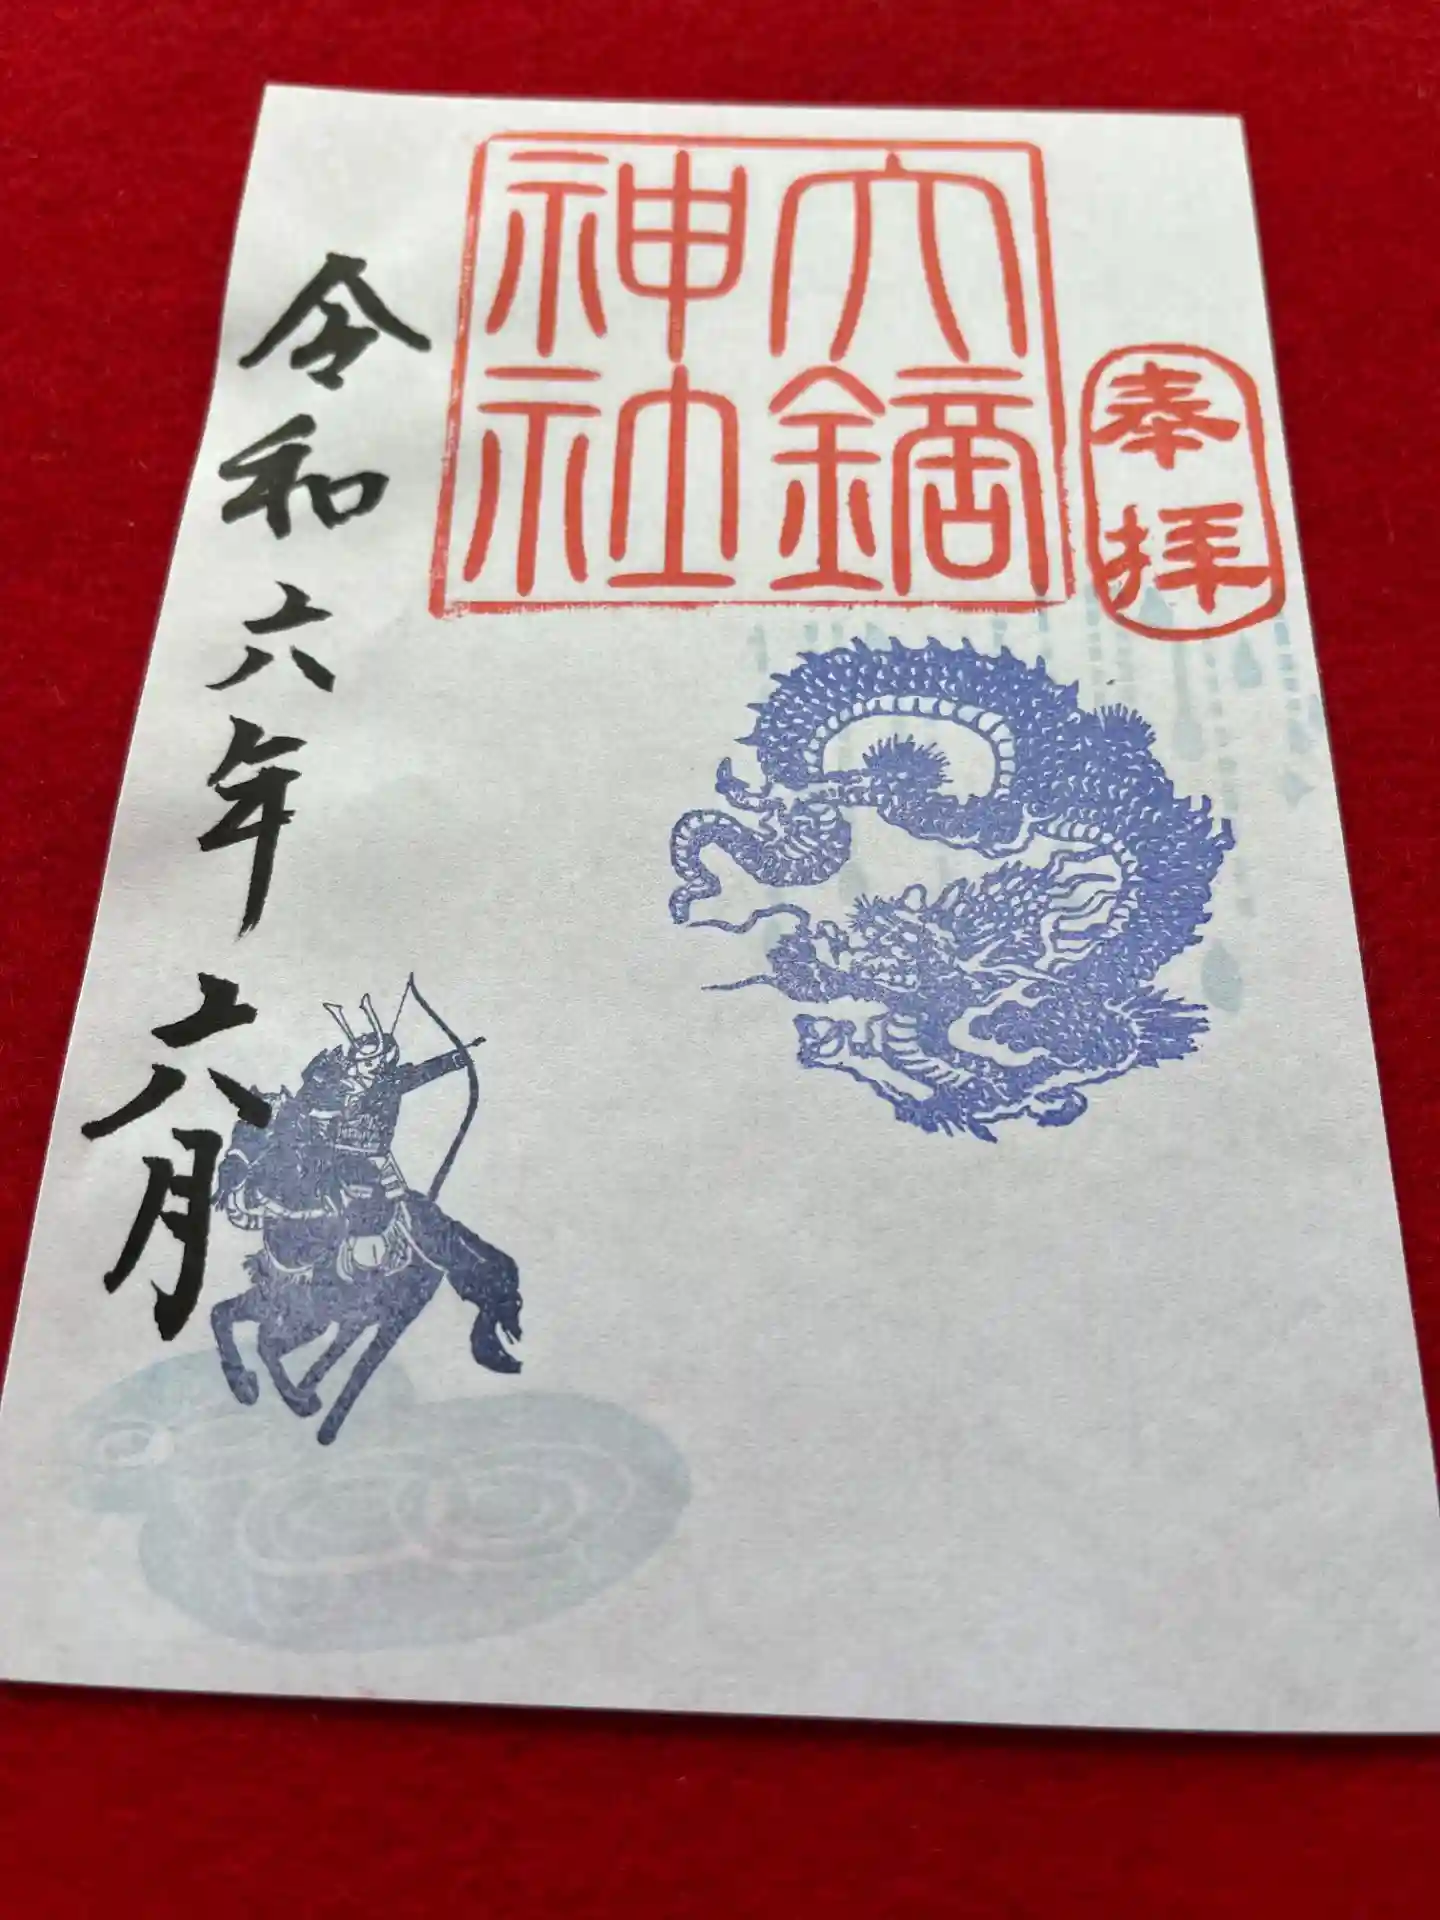 奉拝
六鏑
神社
令和六年六月